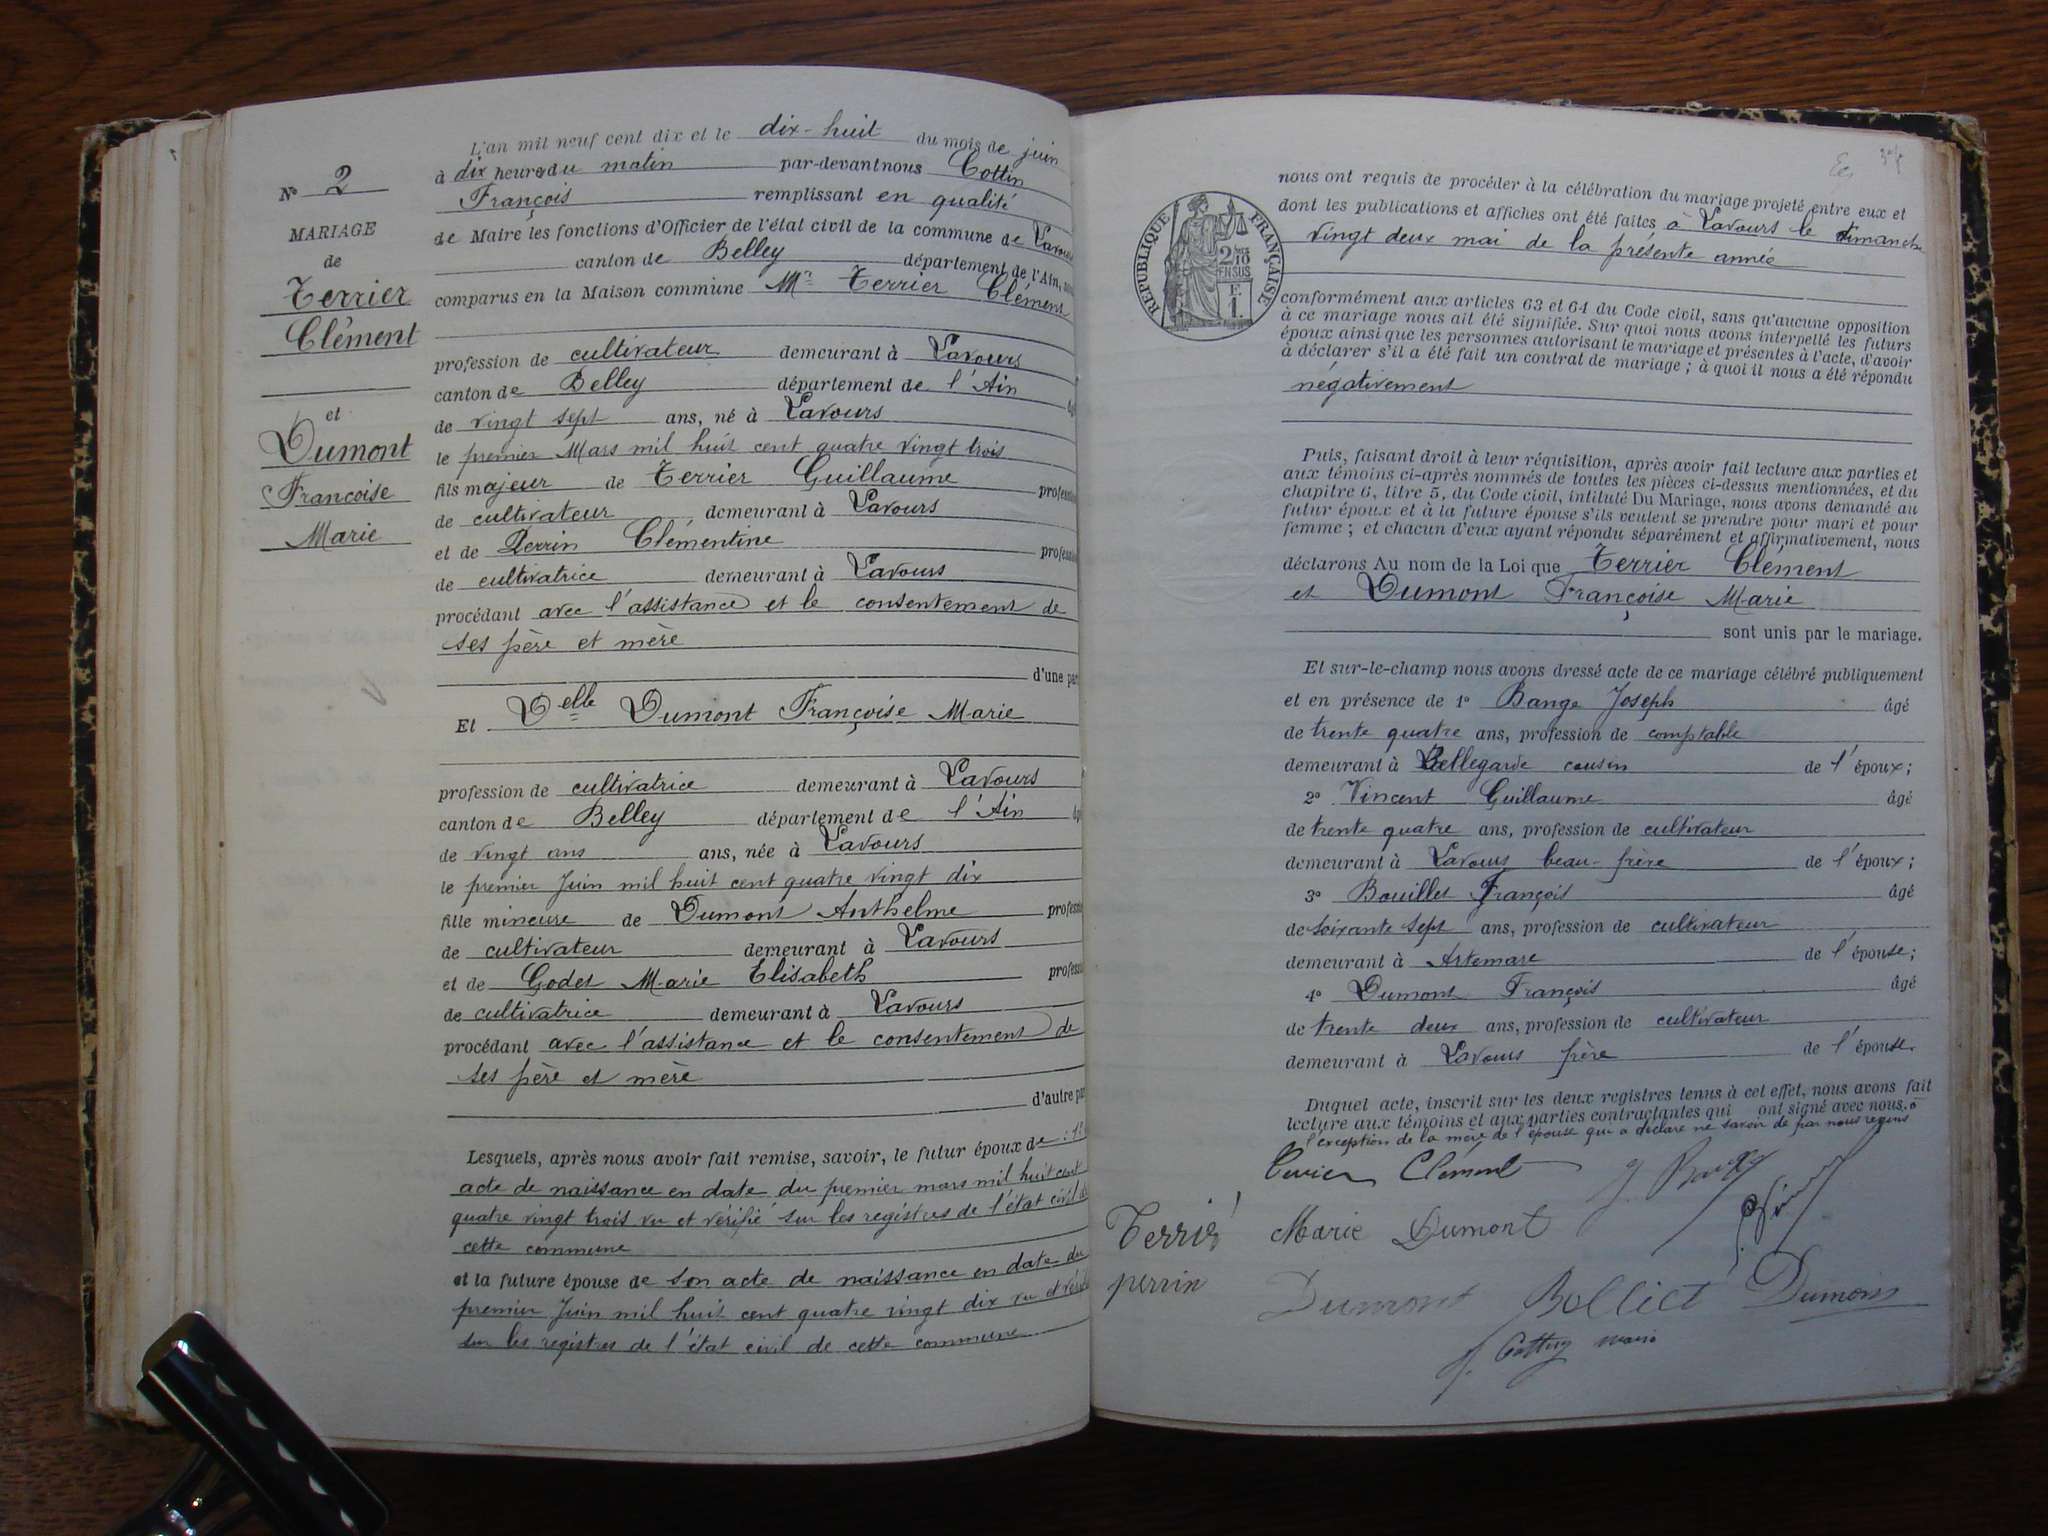 L'an mil neuf cent dix et le dix-huit du mois de juin
à dix heures du matin par-devant nous Cottin
François remplissant en qualité
de Maire les fonctions d'Officier de l'état civil de la commune de Lavours
canton de Belley département de l'Ain,
comparus en la Maison commune Mr Terrier Clément
profession de cultivateur demeurant à Lavours
canton de Belley département de l'Ain
de vingt sept ans, né à Lavours
le premier Mars mil huit cent quatre vingt trois
fils majeur de Terrier Guillaume profession
de cultivateur demeurant à Lavours
et de Perrin Clémentine profession
de cultivatrice demeurant à Lavours
procédant avec l'assistance et le consentement de
ses père et mère
d'une par
Et Delle Dumont Françoise Marie
profession de cultivatrice demeurant à Lavours
canton de Belley département de l'Ain
de vingt ans ans, née à Lavours
le premier Juin mil huit cent quatre vingt dix
fille mineure de Dumont Anthelme professio
de cultivateur demeurant à Lavours
et de Godet Marie Elisabeth profess
de cultivatrice demeurant à Lavours
procédant avec l'assistance et le consentement de
ses père et mère
d'autre par
Lesquels, après nous avoir fait remise, savoir, le futur époux de : 1º
acte de naissance en date du premier mars mil huit cent
quatre vingt trois vu et vérifié sur les registres de l'état civil de
cette commune
et la future épouse de son acte de naissance en date du
premier Juin mil huit cent quatre vingt dix vu et vérifié
sur les registres de l'état civil de cette commune
Nº 2
MARIAGE
de
Terrier
Clément
et
Dumont
Françoise
Marie
RÉPUBLIQUE FRANÇAISE
2/10
EN SUS
F.
1.
nous ont requis de procéder à la célébration du mariage projeté entre eux et
dont les publications et affiches ont été faites à Lavours le dimanche
vingt deux mai de la présente année
conformément aux articles 63 et 64 du Code civil, sans qu'aucune opposition
à ce mariage nous ait été signifiée. Sur quoi nous avons interpellé les futurs
époux ainsi que les personnes autorisant le mariage et présentes à l'acte, d'avoir
à déclarer s'il a été fait un contrat de mariage ; à quoi il nous a été répondu
négativement
Puis, faisant droit à leur réquisition, après avoir fait lecture aux parties et
aux témoins ci-après nommés de toutes les pièces ci-dessus mentionnées, et du
chapitre 6, titre 5, du Code civil, intitulé Du Mariage, nous avons demandé au
futur époux et à la future épouse s'ils veulent se prendre pour mari et pour
femme ; et chacun d'eux ayant répondu séparément et affirmativement, nous
déclarons Au nom de la Loi que Terrier Clément
et Dumont Françoise Marie
sont unis par le mariage.
Et sur-le-champ nous avons dressé acte de ce mariage célébré publiquement
et en présence de 1º Bange Joseph âgé
de trente quatre ans, profession de comptable
demeurant à Bellegarde cousin de l'époux;
2º Vincent Guillaume âgé
de trente quatre ans, profession de cultivateur
demeurant à Lavours beau-frère de l'époux;
3º Bouillet François âgé
de soixante sept ans, profession de cultivateur
demeurant à Artemare de l'épouse;
4º Dumont François âgé
de trente deux ans, profession de cultivateur
demeurant à Lavours frère de l'épouse.
Duquel acte, inscrit sur les deux registres tenus à cet effet, nous avons fait
lecture aux témoins et aux parties contractantes qui ont signé avec nous. à
l'exception de la mère de l'épouse qui a déclaré ne savoir de par nous requis
Terrier Clément
Terrier Marie Dumont
perrin
Dumont Dumont